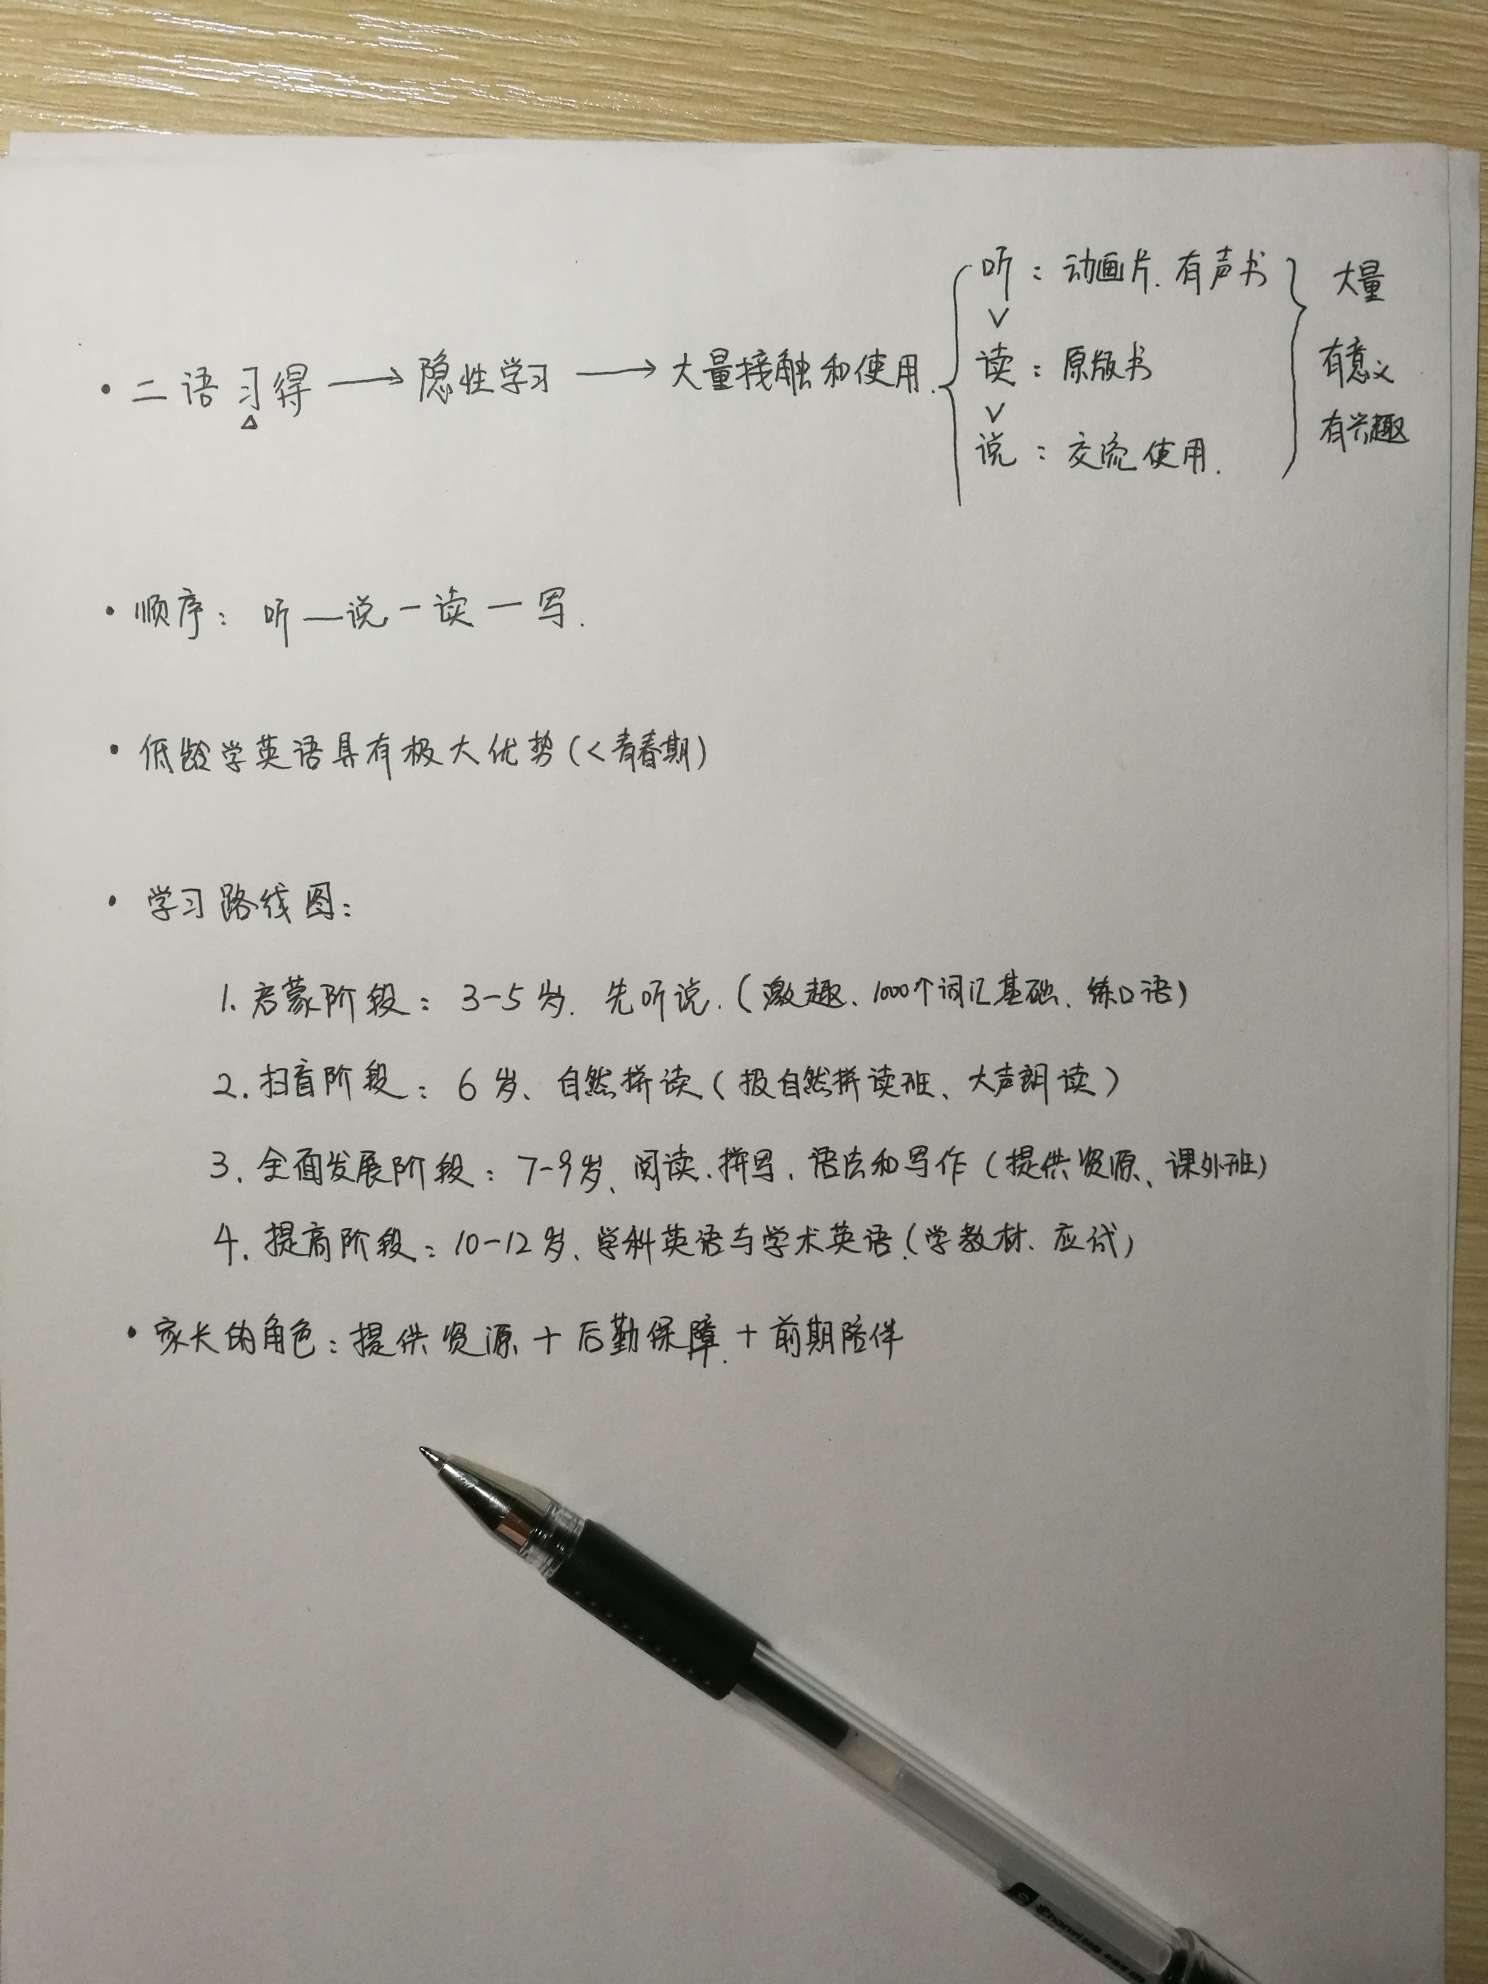 听：动画片、有声书 大量
∨
• 二语习得 → 隐性学习 → 大量接触和使用. 读：原版书 有意义
△
∨
说：交流使用. 有兴趣
• 顺序：听—说—读—写.
• 低龄学英语具有极大优势(<青春期)
• 学习路线图：
1. 启蒙阶段：3-5岁、先听说.(激趣、1000个词汇基础、练口语)
2. 扫盲阶段：6岁、自然拼读(报自然拼读班、大声朗读)
3. 全面发展阶段：7-9岁、阅读、拼写、语法和写作(提供资源、课外班)
4. 提高阶段：10-12岁、学科英语与学术英语.(学教材、应试)
• 家长的角色：提供资源+后勤保障.+前期陪伴